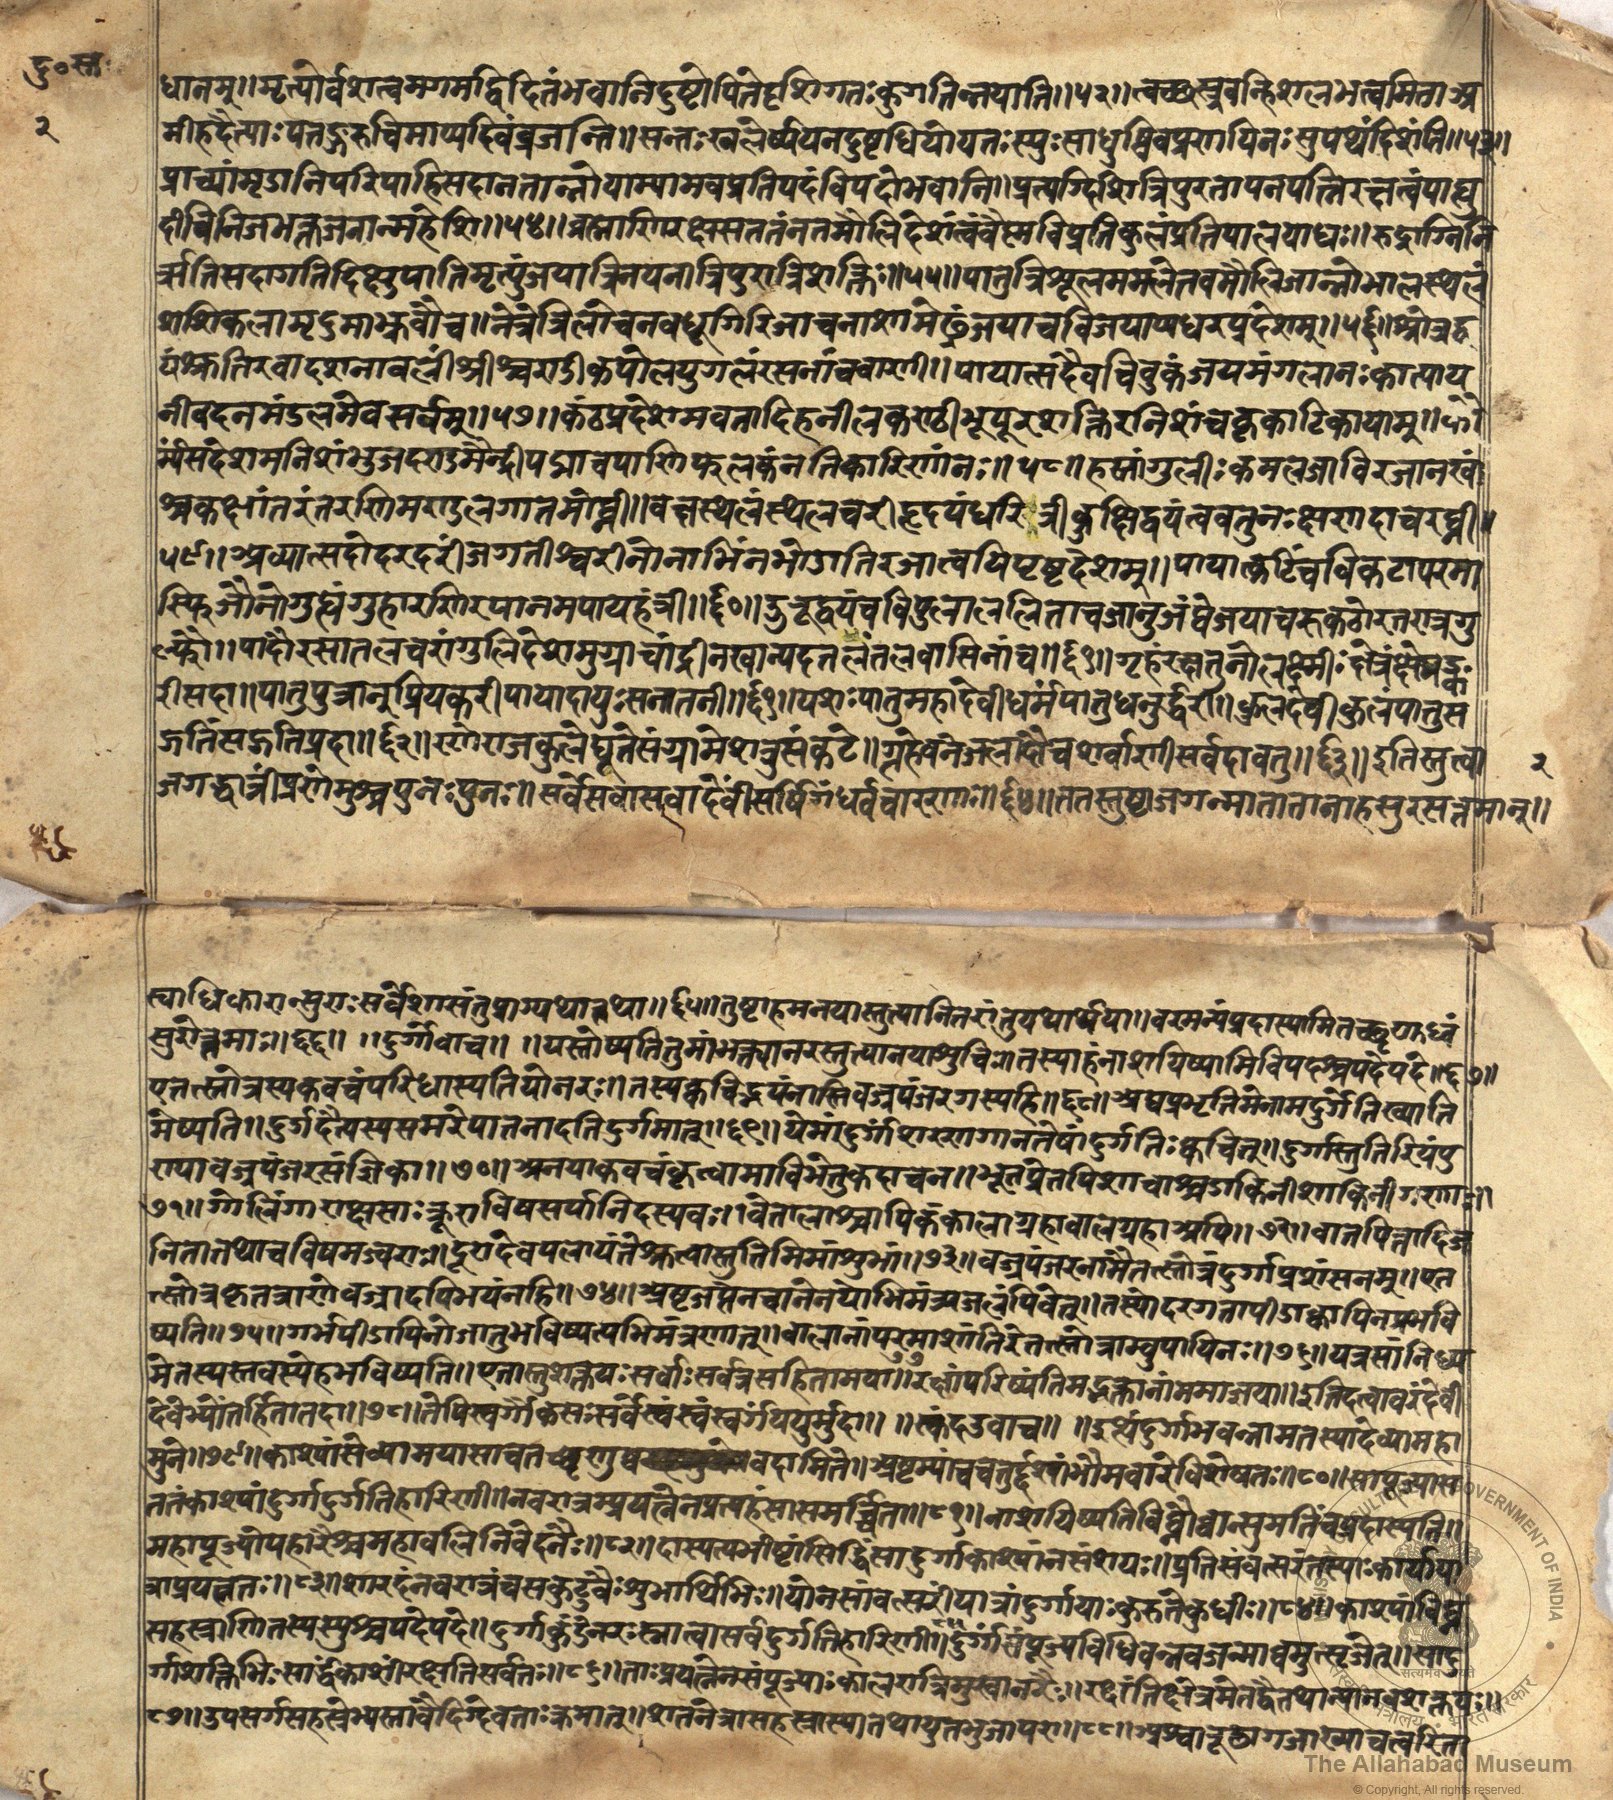 दु॰स्त
२
धानम्॥मृत्योर्वशत्वमगमद्विदितंभवानिदुष्टोपितेदृशिगतःकुगतिन्नयाति॥५२॥त्वच्छस्त्रवन्हिशलभत्वमिताअ
मीहदैत्याःपतङ्गरुचिमाप्यदिवंव्रजन्ति॥सन्तःखलेष्वपिनदुष्टधियोयतःस्युःसाधुष्विवप्रणयिनःसुपथंदिशंति॥५३॥
प्राच्यांमृडानिपरिपाहिसदानतान्नोयाम्यामवप्रतिपदंविपदोभवानि॥प्रत्यग्दिशित्रिपुरतापनपत्निरक्षत्वंपाह्यु
दीचिनिजभक्तजनान्महेशि॥५४॥ब्रह्माणिरक्षसततंनतमौलिदेशंत्वंवैष्णविप्रतिकुलंप्रतिपालयाधः॥रुद्राग्निनि
र्ऋतिसदागतिदिक्षुपातिमृत्युंजयात्रिनयनात्रिपुरात्रिशक्तिः॥५५॥पातुत्रिशूलममलेतवमौलिजान्नोभालस्थलं
शशिकलामृदुमाभ्रुवौच॥नेत्रेत्रिलोचनवधूगिरिजाचनाशामोष्ठंजयाचविजयाप्यधरप्रदेशम्॥५६॥श्रोत्रद्व
यंश्रुतिरवादशनावलींश्रीश्चण्डीकपोलयुगलंरसनांचवाणी॥पायात्सदैवचिबुकंजयमंगलानःकात्याय
नीवदनमंडलमेवसर्वम्॥५७॥कंठप्रदेशमवतादिहनीलकण्ठीभूपूरशक्तिरनिशंचकृकाटिकायाम्॥कौ
र्म्यंसदेशमनिशंभुजदण्डमैन्द्रीपद्माचपाणिफलकंनतिकारिणांनः॥५८॥हस्तांगुलीःकमलजाविरजानखां
श्चकक्षांतरंतरणिमण्डलगातमोघ्नी॥वक्षस्थलंस्थलचरीहृदयंधरित्रीकुक्षिद्वयंत्ववतुनःक्षणदाचरघ्नी॥
५९॥अव्यात्सदोदरदरींजगतीश्वरीनोनाभिंनभोगतिरजात्वथपृष्ठदेशम्॥पायात्कटिंचविकटापरमा
स्फिजौनोगुह्यंगुहारणिरपानमपायहंत्री॥६०॥ऊरूद्वयंचविपुलाललिताचजानुजंघेजयाचरुकठोरतरात्रगु
ल्फौ॥पादौरसातलचरांगुलिदेशमुग्राचांद्रीनखान्पदतलंतलवासिनीच॥६१॥गृहंरक्षतुनोलक्ष्मीःक्षेत्रंक्षेमङ्क
रीसदा॥पातुपुत्रान्प्रियकरीपायादायुःसनातनी॥६१॥यशःपातुमहादेवीधर्मंपातुधनुर्द्धरी॥कुलदेवीकुलंपातुस
द्गतिंसद्गतिप्रदा॥६२॥रणेराजकुलेद्यूतेसंग्रामेशत्रुसंकटे॥गृहेवनेजलादौचशर्वाणीसर्वदावतु॥६३॥इतिस्तुत्वा
२
जगद्धात्रींप्रणेमुश्चपुनःपुनः॥सर्वेसवासवादेवीसर्षिगंधर्वचारणाः॥६४॥ततस्तुष्टाजगन्मातातानाहसुरसत्तमान्॥
स्वाधिकारान्सुराःसर्वेशासंतुप्राग्यथातथा॥६५॥तुष्टाहमनयास्तुत्यानितरांतुयथार्थया॥वरमन्यंप्रदास्यामितच्छृणुध्वं
सुरोत्तमाः॥६६॥ ॥दुर्गोवाच॥ ॥यःस्तोष्यतितुमांभक्त्यानरस्तुत्यानयाशुचिः॥तस्याहंनाशयिष्यामिविपदश्चपदेपदे॥६७॥
एतत्स्तोत्रस्यकवचंपरिधास्यतियोनरः॥तस्यक्वचिद्भयंनास्तिवज्रपंजरगस्यहि॥६८॥अद्यप्रभृतिमेनामदुर्गेतिख्याति
मेष्यति॥दुर्गदैत्यस्यसमरेपातनादतिदुर्गमात्॥६९॥येमांदुर्गांशरणगानतेषांदुर्गतिःक्वचित्॥दुर्गास्तुतिरियंपु
ण्यावज्रपंजरसंज्ञिका॥७०॥अनयाकवचंकृत्वामाबिभेतुकदाचन॥भूतप्रेतपिशाचाश्चडाकिनीशाकिनीगणाः॥
७१॥गोलिंगाराक्षसाःक्रूराविषसर्पाग्निदस्यवः॥वेतालाश्चापिकंकालाग्रहाबालग्रहाअपि॥७२॥वातपित्तादिज
नितातथाचविषमज्वराः॥दूरादेवपलायंतेश्रुत्वास्तुतिमिमांशुभां॥७३॥वज्रपंजरनामैतत्स्तोत्रंदुर्गाप्रशंसनम्॥एत
त्स्तोत्रकृतत्राणेवज्रादपिभयंनहि॥७४॥अष्टजप्तेनचानेनयोभिमंत्र्यजलंपिबेत्॥तस्योदरगतापीडाक्वापिनप्रभवि
ष्यति॥७५॥गर्भपीडापिनोजातुभविष्यत्यभिमंत्रणात्॥बालानांपरमाशांतिरेतत्स्तोत्राम्बुपायिनः॥७६॥यत्रसांनिध्य
मेतस्यस्तवस्येहभविष्यति॥एतास्तुशक्तयःसर्वाःसर्वत्रसहितामया॥रक्षांपरिष्यंतिमद्भक्तानांममाज्ञया॥इतिदत्वावरंदेवी
देवेभ्योंतर्हितातदा॥७८॥तेपिस्वर्गौकसःसर्वेस्वंस्वंस्वर्गंययुर्मुदा॥ ॥स्कंदउवाच॥ ॥इत्थंदुर्गाभवन्नामतस्यादेव्यामहा
मुने॥७९॥काश्यांसेव्यामयासाचतच्छृणुष्ववदामिते॥अष्टम्यांचचतुर्द्दश्यांभौमवारेविशेषतः॥८०॥सापूज्यास
ततंकाश्यांदुर्गादुर्गतिहारिणी॥नवरात्रम्प्रयत्नेनप्रत्यहंसासमर्च्चिता॥८१॥नाशयिष्यतिविघ्नौघान्सुमतिंचप्रदास्यति॥
महापूजोपहारैश्चमहाबलिनिवेदनैः॥८२॥दास्यत्यभीष्टांसिद्धिंसादुर्गाकाश्यांनसंशयः॥प्रतिसंवत्सरंतस्याःकार्याया
त्राप्रयत्नतः॥८३॥शारदंनवरात्रंचसकुटुंबैःशुभार्थिभिः॥योनसांवत्सरींयात्रांदुर्गायाःकुरुतेकुधीः॥८४॥काश्यांविघ्न
सहस्राणितस्यस्युश्चपदेपदे॥दुर्गाकुंडेनरःस्नात्वासर्वदुर्गतिहारिणीं॥दुर्गांसंपूज्यविधिवन्नवजन्माघमुत्सृजेत्॥सादु
र्गाशक्तिभिःसार्द्धंकाशींरक्षतिसर्वतः॥८६॥ताःप्रयत्नेनसंपूज्याःकालरात्रिमुखानरैः॥रक्षंतिक्षेत्रमेतद्वैतथान्यानवशक्तयः॥
८७॥उपसर्गसहस्रेभ्यस्तावैदिग्देवताःक्रमात्॥शतनेत्रासहस्रास्यातथायुतभुजापरा॥८८॥अश्वारूढागजास्याचत्वरिता
The Allahabad Museum
© Copyright, All rights reserved.